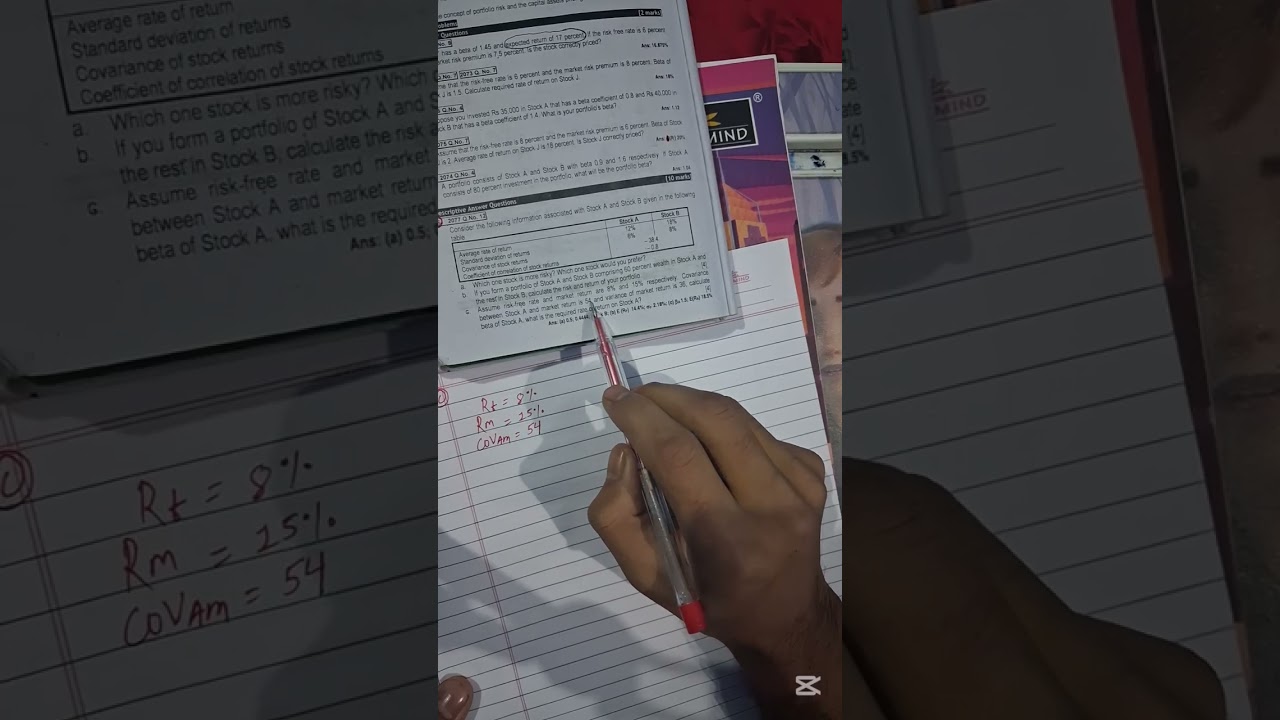 he concept of portfolio risk and the capital assets
oblems
Questions [2 marks]
has a beta of 1.45 and expected return of 17 percent. If the risk free rate is 6 percent
rket risk premium is 7.5 percent, is the stock correctly priced?
Ans: 16.875%
Q.No. 7 2073 Q. No. 7
me that the risk-free rate is 6 percent and the market risk premium is 8 percent. Beta of
k J is 1.5. Calculate required rate of return on Stock J.
Ans: 18%
Q.No. 4
ppose you invested Rs 35,000 in Stock A that has a beta coefficient of 0.8 and Rs 40,000 in
ck B that has a beta coefficient of 1.4. What is your portfolio's beta?
Ans: 1.12
075 Q.No. 7
Assume that the risk-free rate is 8 percent and the market risk premium is 6 percent. Beta of Stock
J is 2. Average rate of return on Stock J is 18 percent. Is Stock J correctly priced?
20%
2074 Q.No. 4
A portfolio consists of Stock A and Stock B with beta 0.9 and 1.6 respectively. If Stock A
consists of 80 percent investment in the portfolio, what will be the portfolio beta?
Ans: 1.04
escriptive Answer Questions [10 marks]
2077 Q.No. 12
Consider the following information associated with Stock A and Stock B given in the following
table
Stock A Stock B
Average rate of return 12% 18%
Standard deviation of returns 6% 8%
Covariance of stock returns – 38.4
Coefficient of correlation of stock returns – 0.8
a. Which one stock is more risky? Which one stock would you prefer?
b. If you form a portfolio of Stock A and Stock B comprising 60 percent wealth in Stock A and
the rest in Stock B, calculate the risk and return of your portfolio. [4]
c. Assume risk-free rate and market return are 8% and 15% respectively. Covariance
between Stock A and market return is 54 and variance of market return is 36, calculate
beta of Stock A, what is the required rate of return on Stock A? [4]
Ans: (a) 0.5; 0.4444; B; (b) 14.4%; 2.18%; (c) 1.5; 18.5%
MIND
®
Rf = 8%
Rm = 15%
COVAm = 54
Average rate of return
Standard deviation of returns
Covariance of stock returns
Coefficient of correlation of stock returns
a. Which one stock is more risky? Which
b. If you form a portfolio of Stock A and S
the rest in Stock B, calculate the risk a
c. Assume risk-free rate and market
between Stock A and market return
beta of Stock A, what is the required
Ans: (a) 0.5;
Rf = 8%
Rm = 15%
COVAm = 54
MIND
®
[4]
8.5%